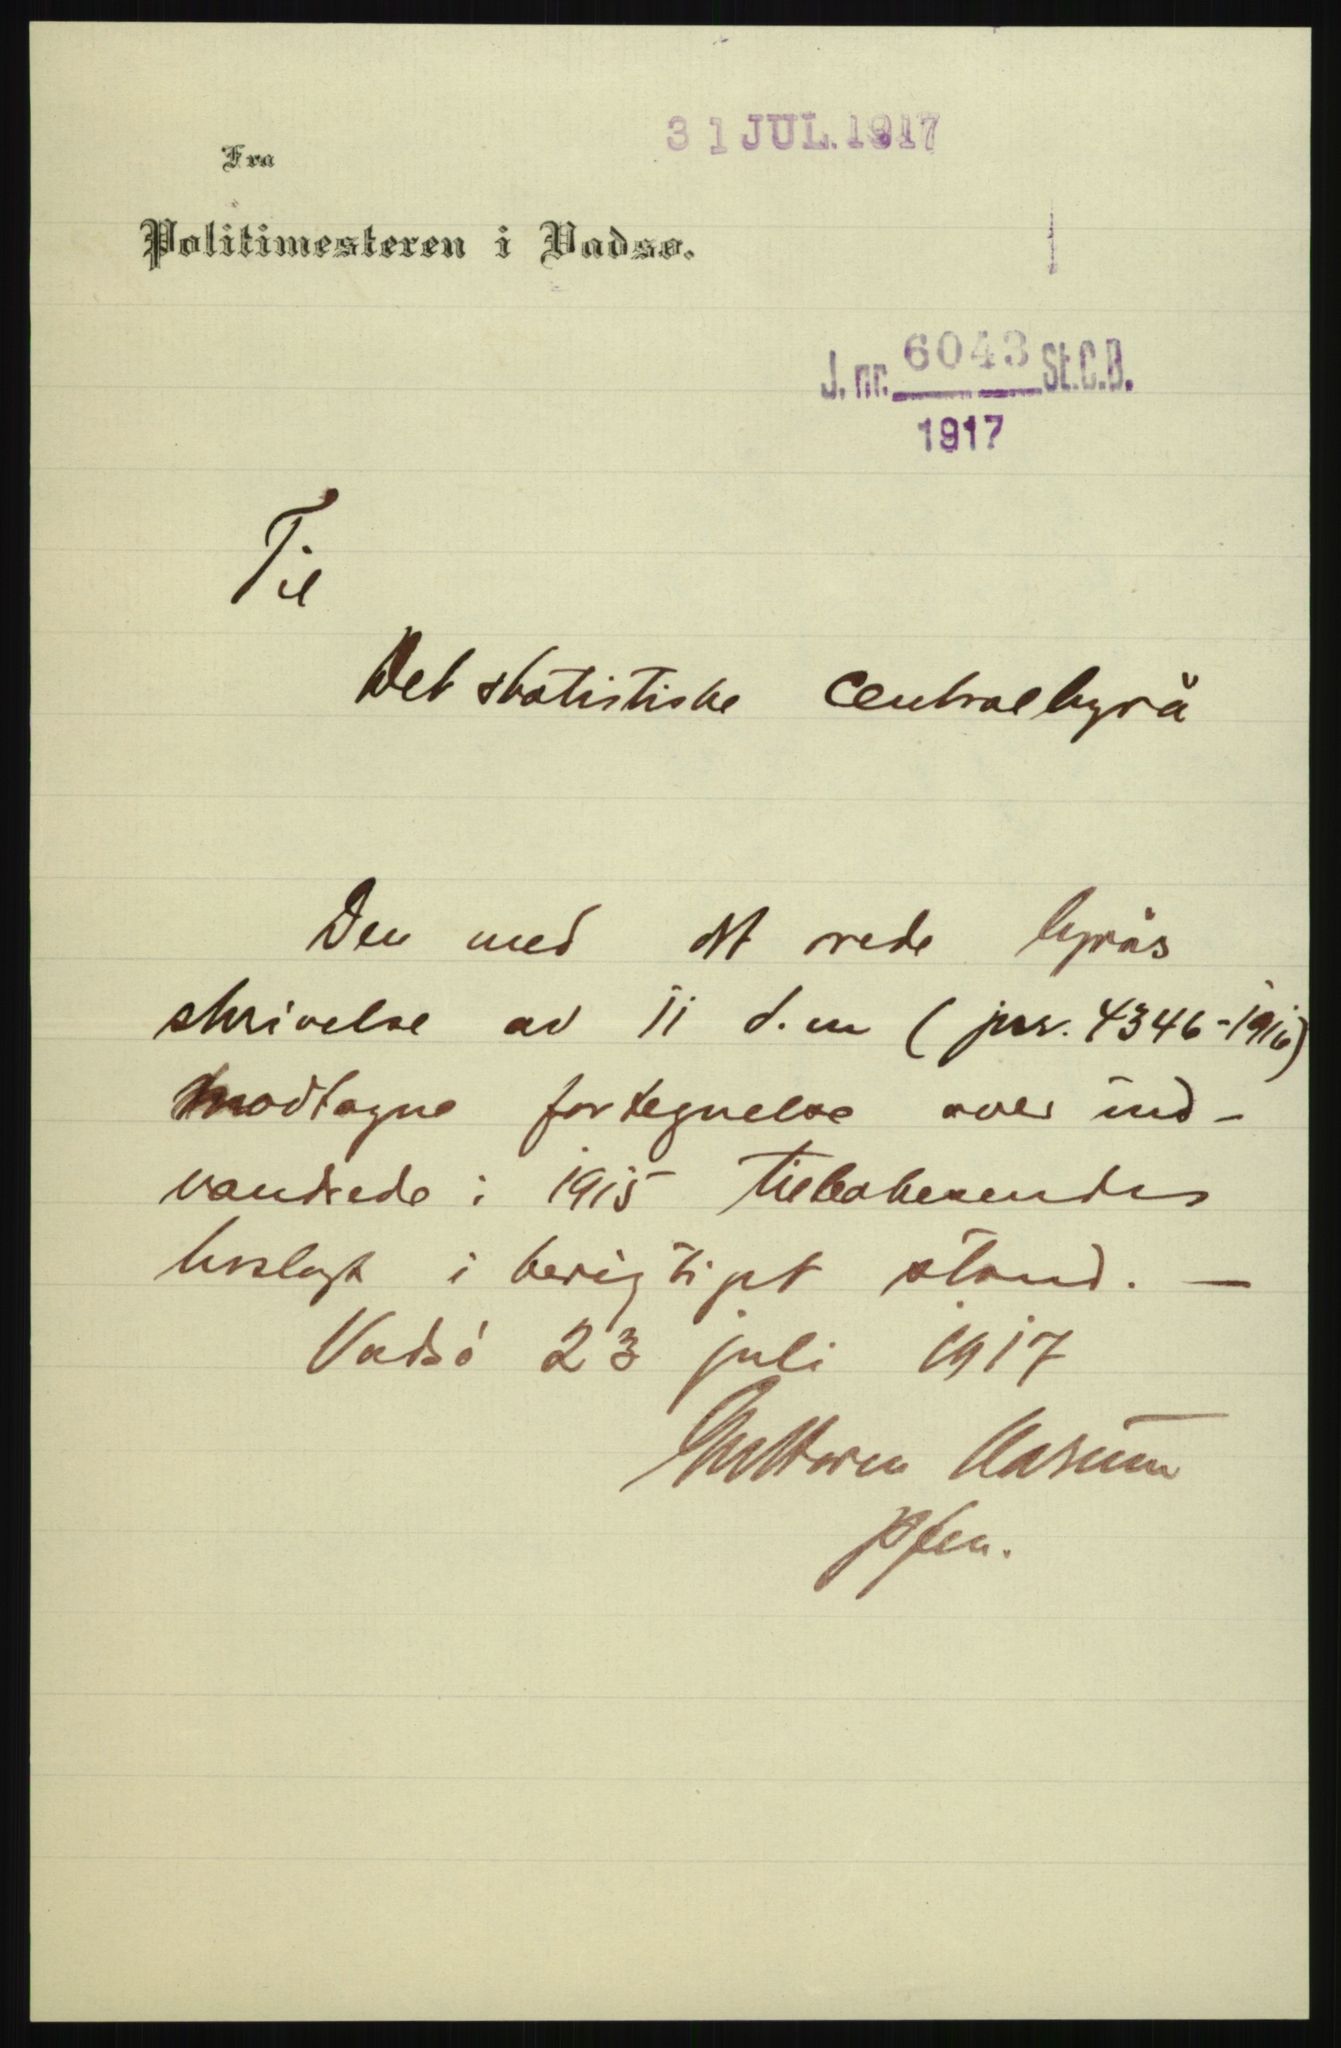 31 JUL. 1917
Fra
Politimesteren i Vadsø.
J. nr. 6043 St.C.B.
1917
Til
Det statistiske Centralbyrå
Den med det ærede byrås
skrivelse av 11 d.m (jnr. 4346-1916)
modtagne fortegnelse over ind-
vandrede i 1915 tilbakesendes
hoslagt i berigtiget stand. —
Vadsö 23 juli 1917
Guttorm